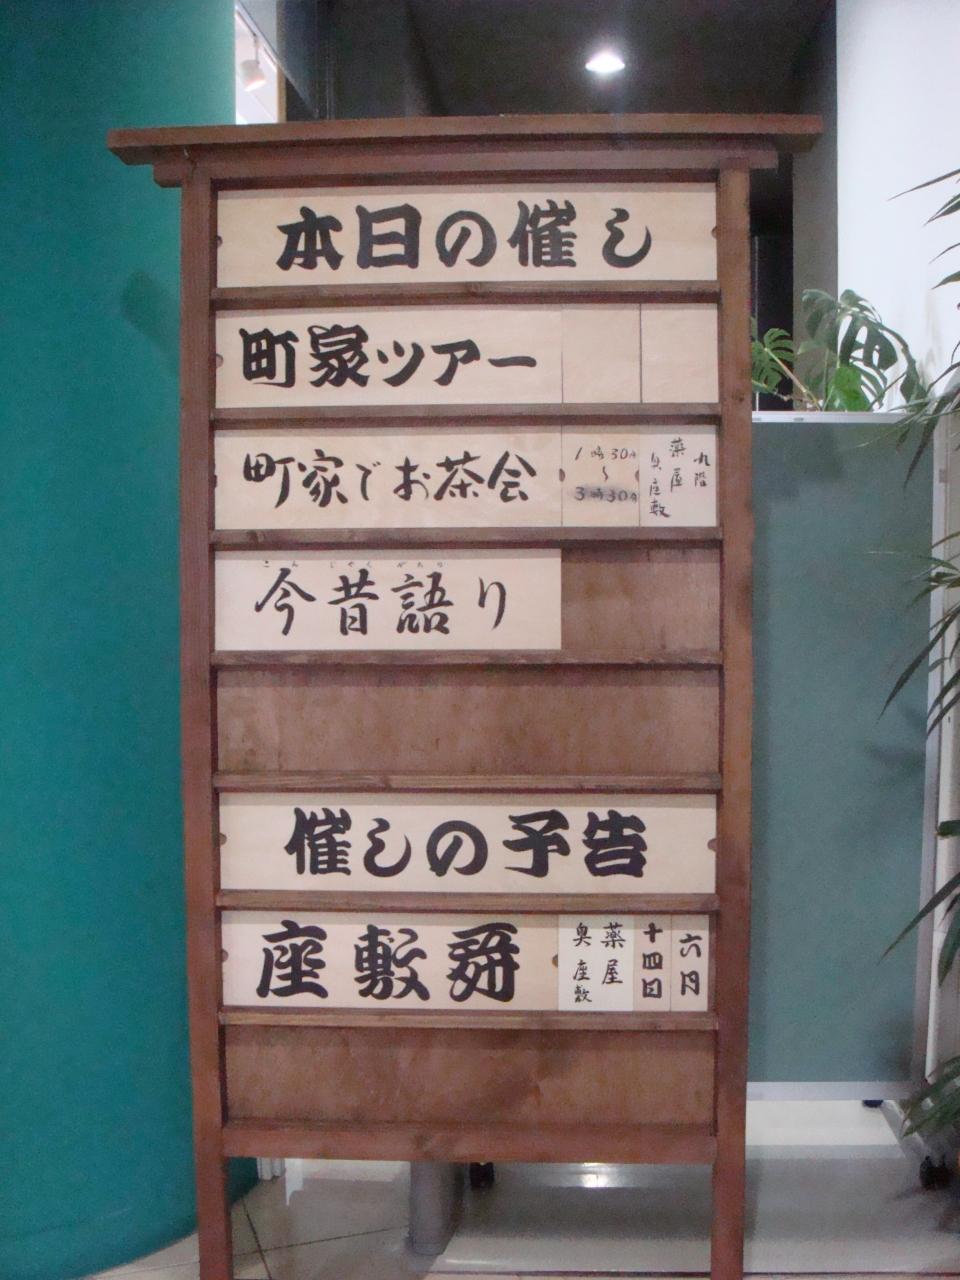 本日の催し
町家ツアー
町家でお茶会
1時30分
～
3時30分
九階
薬屋
奥座敷
こんじゃくがたり
今昔語り
催しの予告
座敷舞
六月
十四日
薬屋
奥座敷